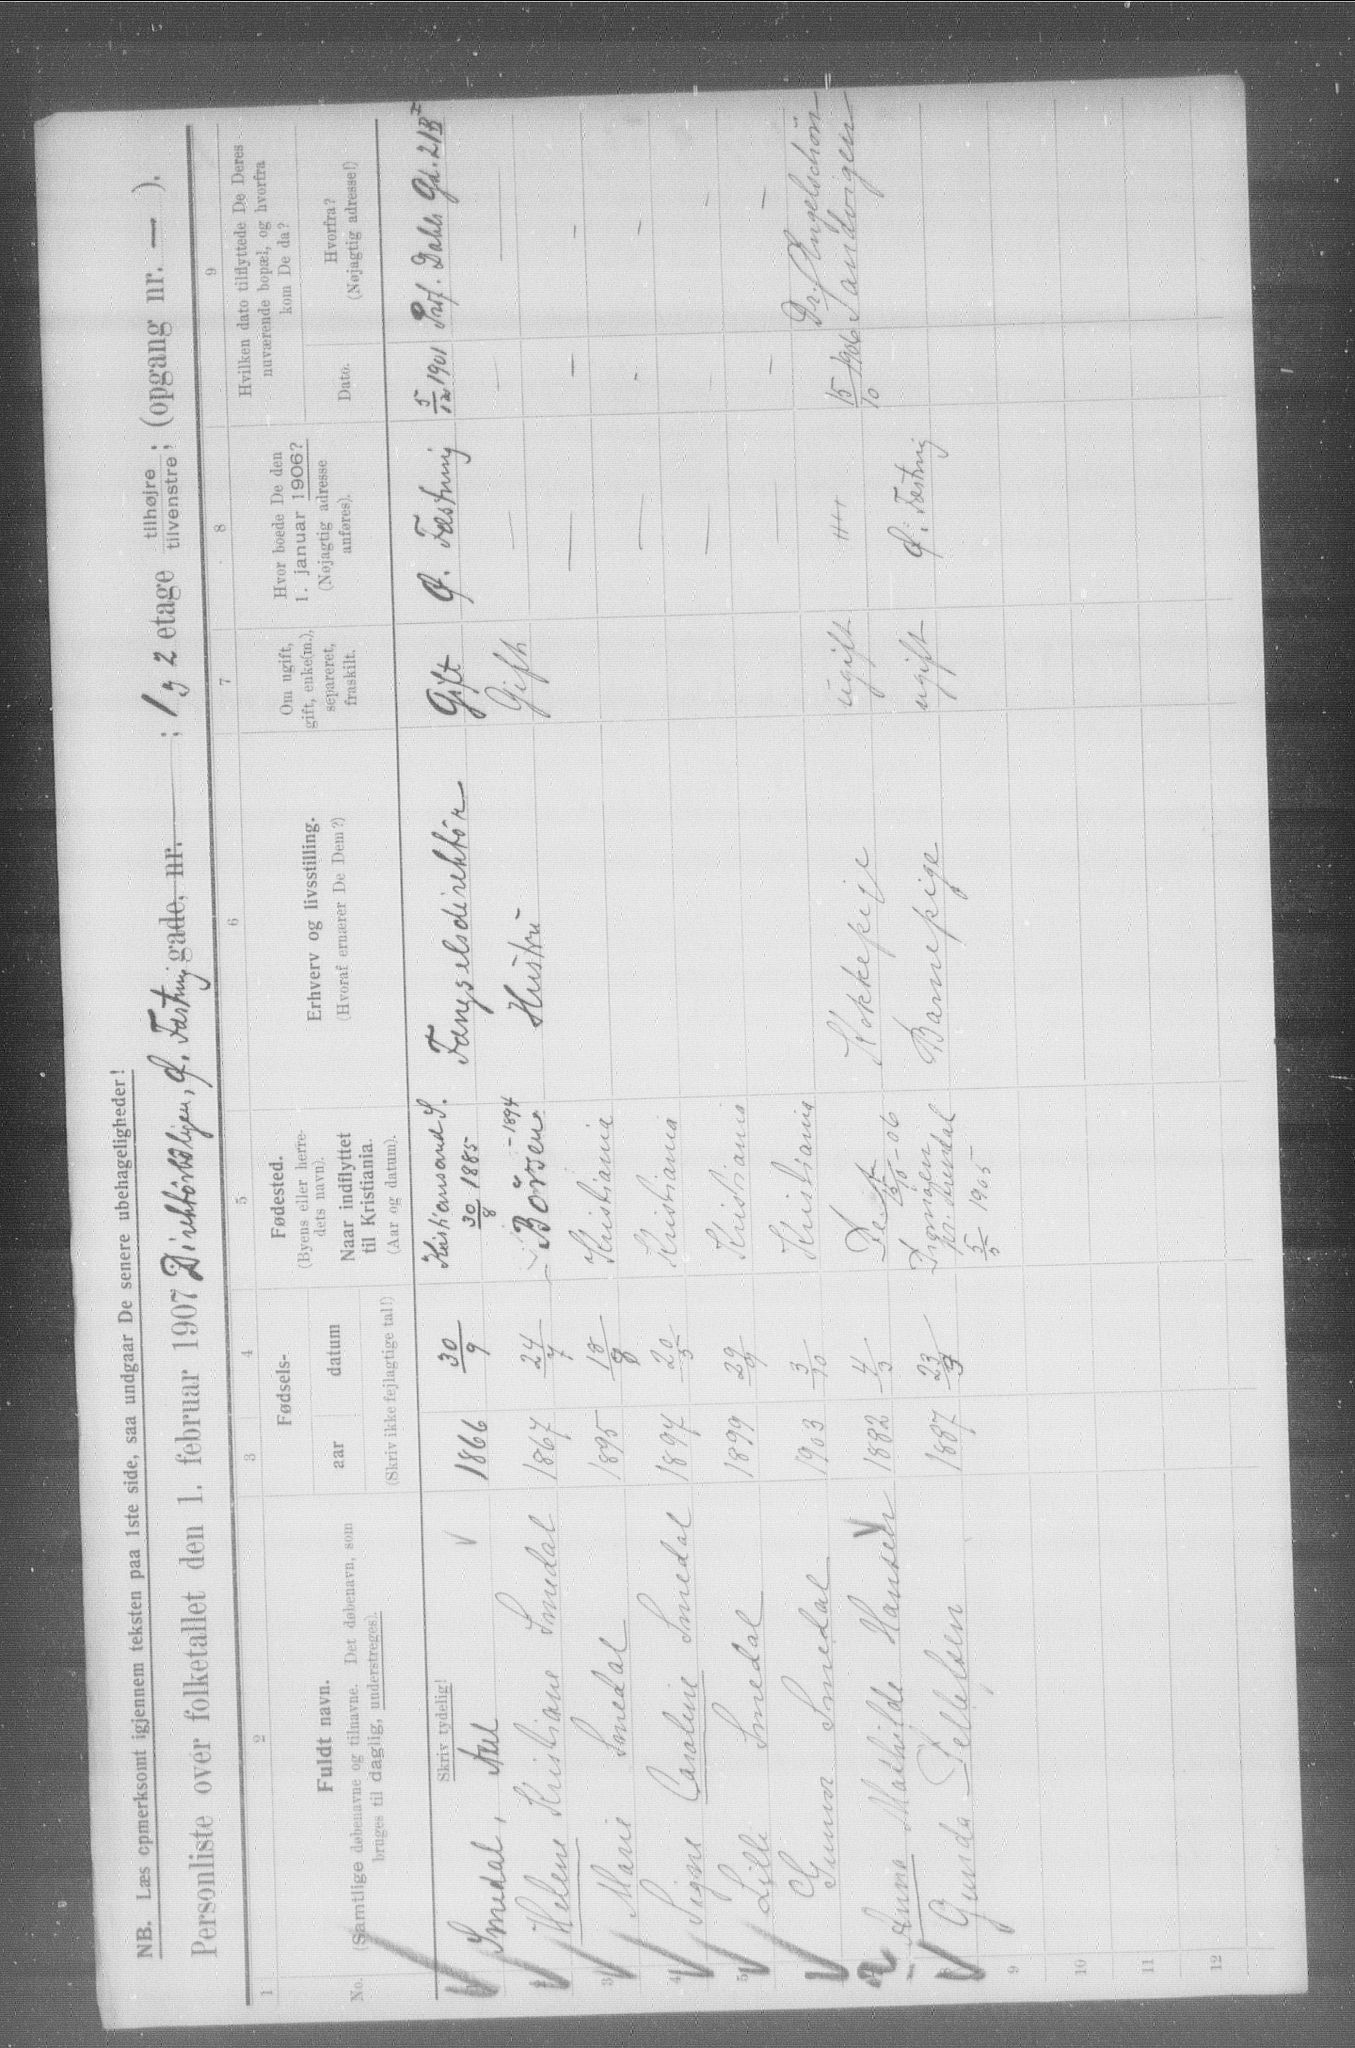 NB. Læs opmerksomt igjennem teksten paa 1ste side, saa undgaar De senere ubehageligheder!
Personliste over folketallet den 1. februar 1907 Direktörboligen, A. Fæstning gade, nr. — ; 1 og 2 etage tilhøjre tilvenstre ; (opgang nr. — ).
1 2 3 4 5 6 7 8 9
No.
Fuldt navn.
(Samtlige døbenavne og tilnavne. Det døbenavn, som
bruges til daglig, understreges).
Fødsels-
aar datum
(Skriv ikke fejlagtige tal!)
Fødested.
(Byens eller herre-
dets navn).
Naar indflyttet
til Kristiania.
(Aar og datum).
Erhverv og livsstilling.
(Hvoraf ernærer De Dem?)
Om ugift,
gift, enke(m.),
separeret,
fraskilt.
Hvor boede De den
1. januar 1906?
(Nøjagtig adresse
anføres).
Hvilken dato tilflyttede De Deres
nuværende bopæl, og hvorfra
kom De da?
Dato.
Hvorfra?
(Nøjagtig adresse!)
Skriv tydelig!
Smedal, Axel 1866 30/9 Kristiansand S. 30/8 1885 Fængselsdirektör Gift A. Fæstning 5/12 1901 Prof. Dahls Gd. 21B I
Helene Kristiane Smedal 1867 24/7 Börsen - 1894 Hustru Gift — — —
3 Marie Smedal 1895 18/8 Kristiania — - -
4 Signe Caroline Smedal 1897 20/5 Kristiania — - -
5 Lilli Smedal 1899 29/9 Kristiania — - -
Gunnar Smedal 1903 3/10 Kristiania — - -
Anna Mathilde Hansen 1882 4/3 15/10-06 Kokkepige ugift 15/10 1906 Dr. Engelschiøn Sandvigen
8 Gunda Pellefsen 1887 23/3 5/5 1905 Barnepige ugift A. Fæstning
9
10
11
12